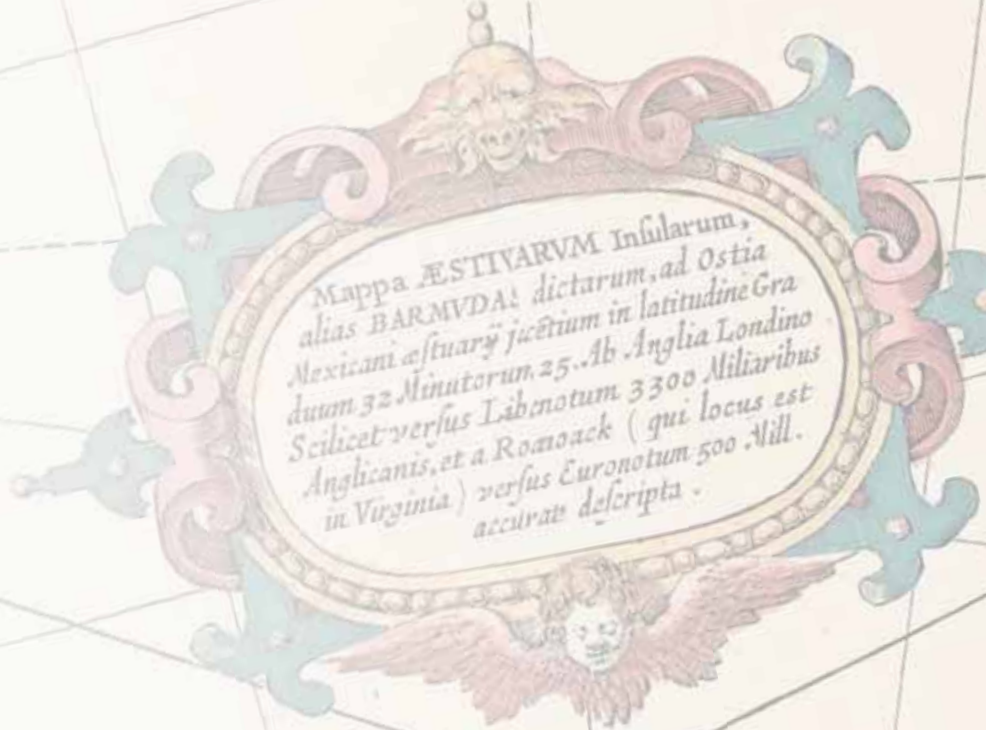 Mappa ÆSTIVARVM Inſularum,
alias BARMVDAS dictarum, ad Ostia
Mexicani æſtuarÿ jacẽtium in latitudine Gra
duum 32 Minutorum 25. Ab Anglia Londino
Scilicet verſus Libonotum 3300 Miliaribus
Anglicanis, et a Roanoack ( qui locus est
in Virginia ) verſus Euronotum 500 Mill.
accurate deſcripta .